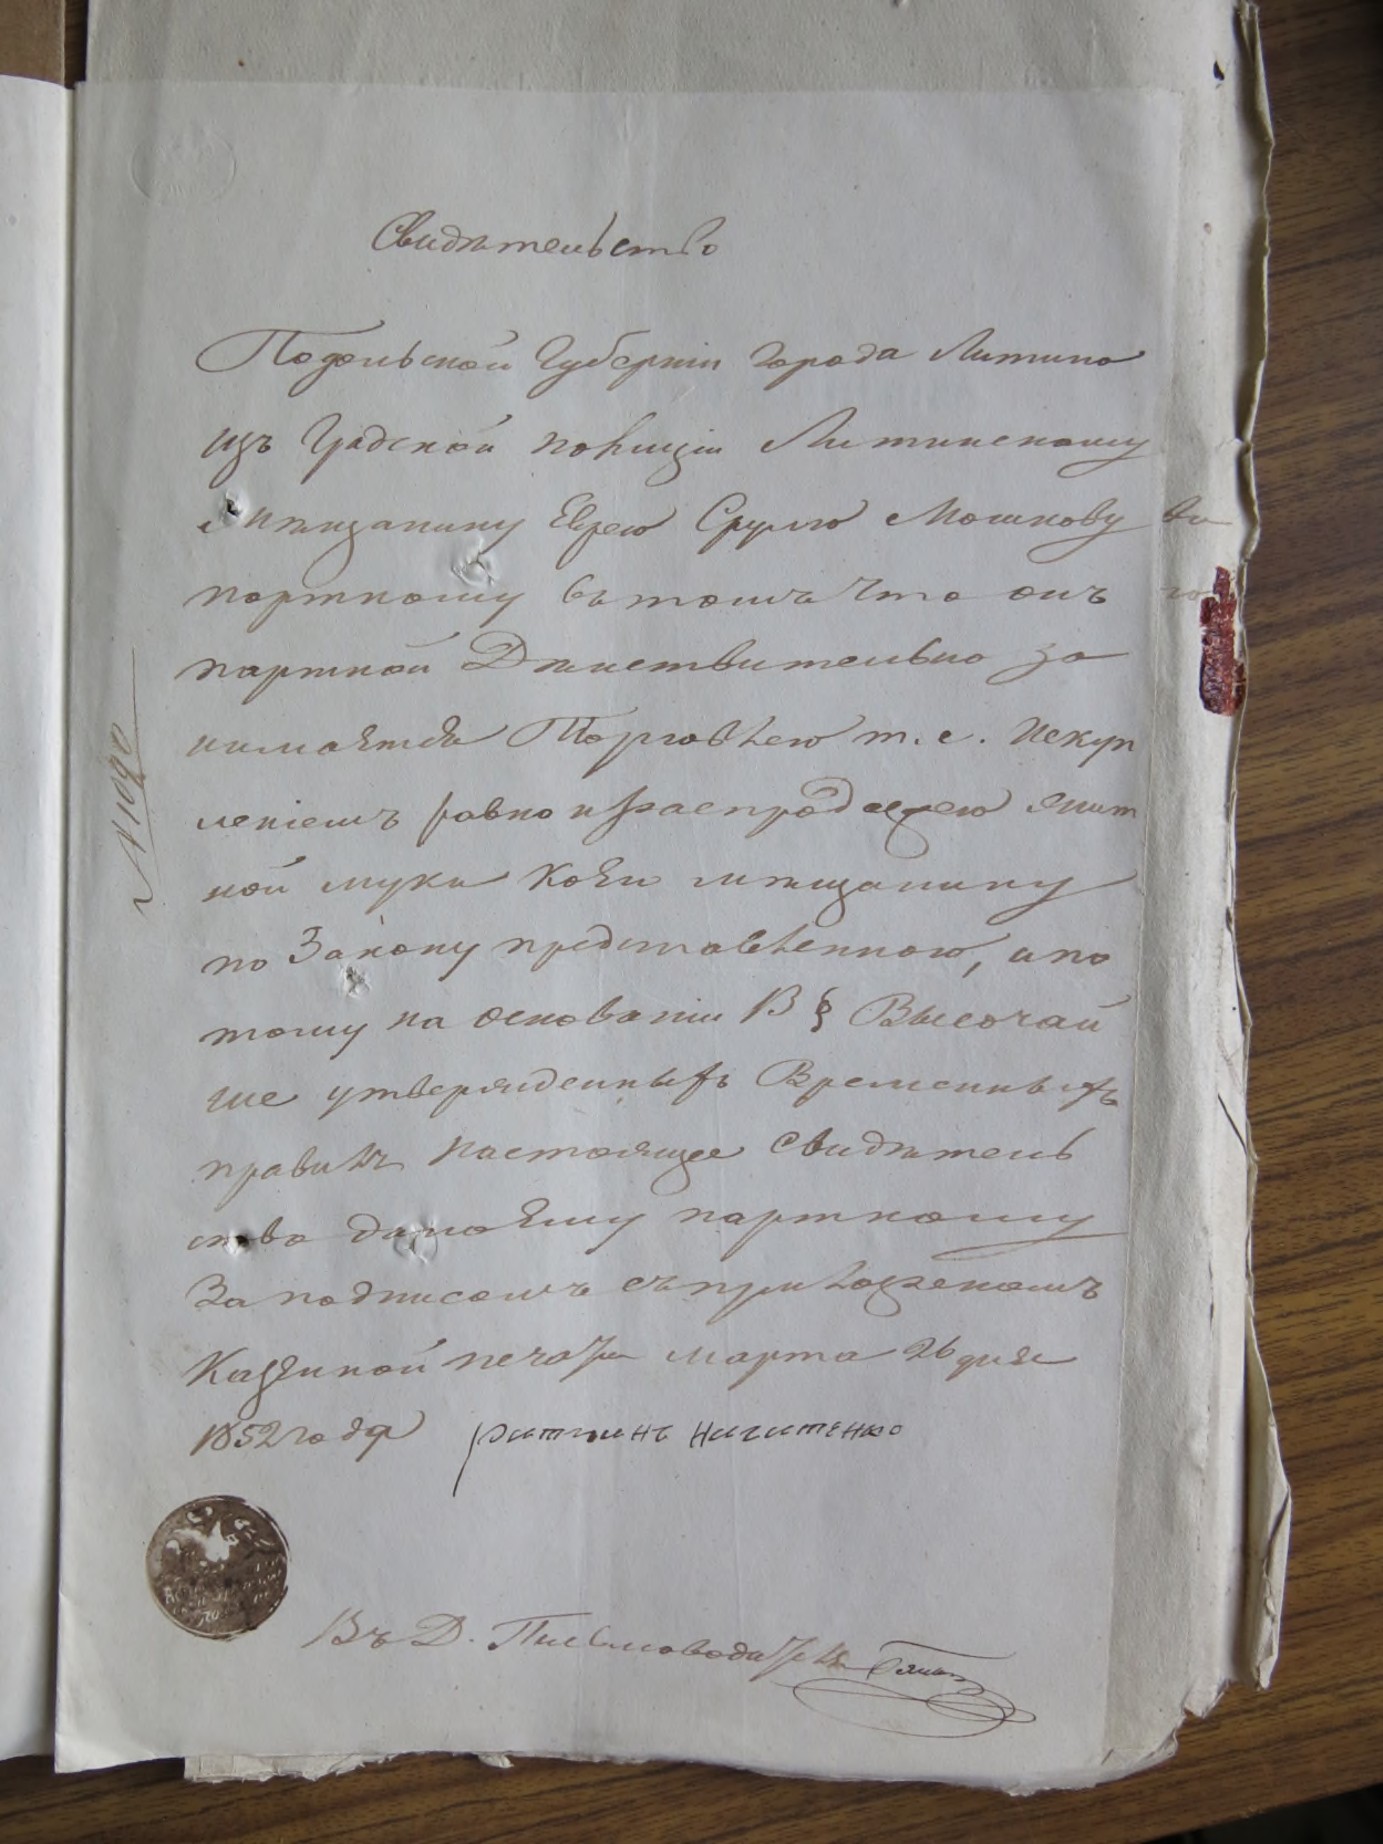 Свидѣтельство
Подольской Губерніи города Литина
изъ Градской полиціи Литинскому
мѣщанину Еврею Срулю Мошкову
портному въ томъ что онъ
партной Дѣйствительно за
нимается Торговлею т. е. искуп
леніемъ равно и распродажею
ной муки коей мѣщанину
по Закону представленною, а по
тому на основаніи 13 § Высочай
ше утвержденныхъ Временныхъ
правилъ настоящее свидѣтель
ство дано ему партному
За подписомъ съ приложеніемъ
Казенной печати марта 26 дня
1852 года
№ 1090
Въ Д. Письмоводителя